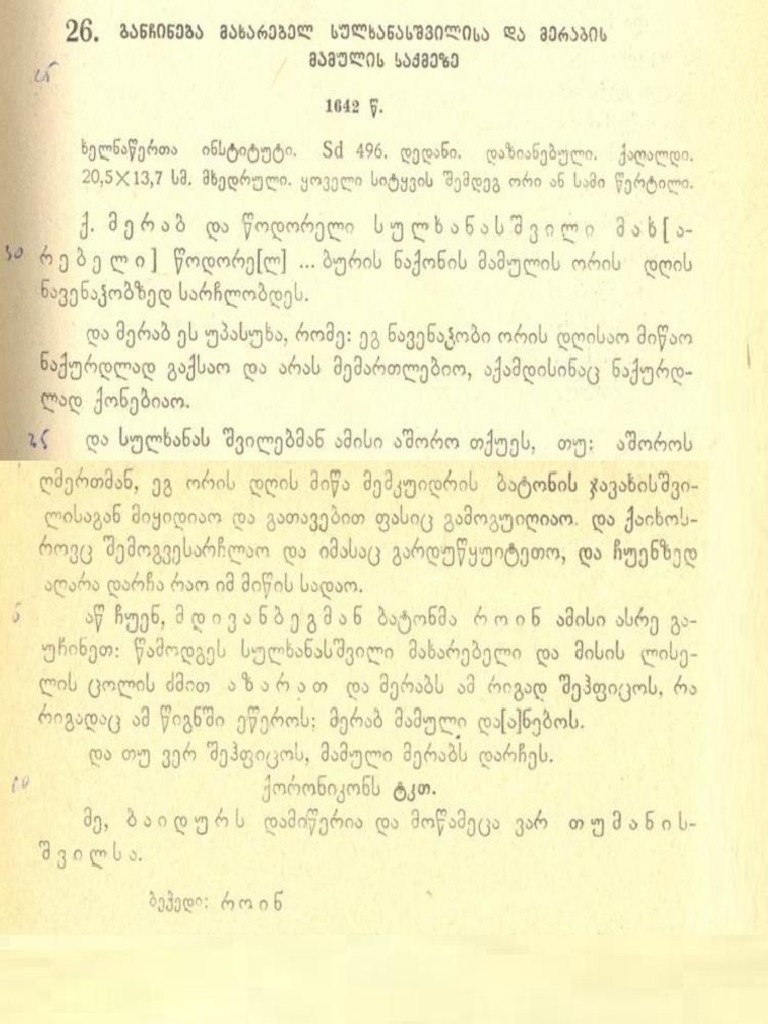 26. განჩინება მახარებელ სულხანასშვილისა და მერაბის
მამულის საქმეზე
25
1642 წ.
ხელნაწერთა ინსტიტუტი. Sd 496. დედანი. დაზიანებული. ქაღალდი.
20,5×13,7 სმ. მხედრული. ყოველი სიტყვის შემდეგ ორი ან სამი წერტილი.
ქ. მერაბ და წოდორელი სულხანასშვილი მახ[ა-
30 რებელი] წოდორე[ლ] ... ბურის ნაქონის მამულის ორის დღის
ნავენაჴობზედ სარჩლობდეს.
და მერაბ ეს უპასუხა, რომე: ეგ ნავენაჴობი ორის დღისაო მიწაო
ნაქურდლად გაქსაო და არას მემართლებიო, აქამდისინაც ნაქურდ-
ლად ქონებიაო.
35 და სულხანას შვილებმან ამისი აშორო თქუეს, თუ: აშოროს
ღმერთმან, ეგ ორის დღის მიწა მემკუიდრის ბატონის ჯავახისშვი-
ლისაგან მიყიდიაო და გათავებით ფასიც გამოგუიღიაო. და ქაიხოს-
როვც შემოგვესარჩლაო და იმასაც გარდუწყუიტეთო, და ჩუენზედ
აღარა დარჩა რაო იმ მიწის სადაო.
5 აწ ჩუენ, მდივანბეგმან ბატონმა როინ ამისი ასრე გა-
უჩინეთ: წამოდგეს სულხანასშვილი მახარებელი და მისის ლისე-
ლის ცოლის ძმით აზარათ და მერაბს ამ რიგად შეჰფიცოს, რა
რიგადაც ამ წიგნში ეწეროს; მერაბ მამული და[ა]ნებოს.
და თუ ვერ შეჰფიცოს, მამული მერაბს დარჩეს.
10 ქორონიკონს ტკთ.
მე, ბაიდურს დამიწერია და მოწამეცა ვარ თუმანის-
შვილსა.
ბეჭედი: როინ